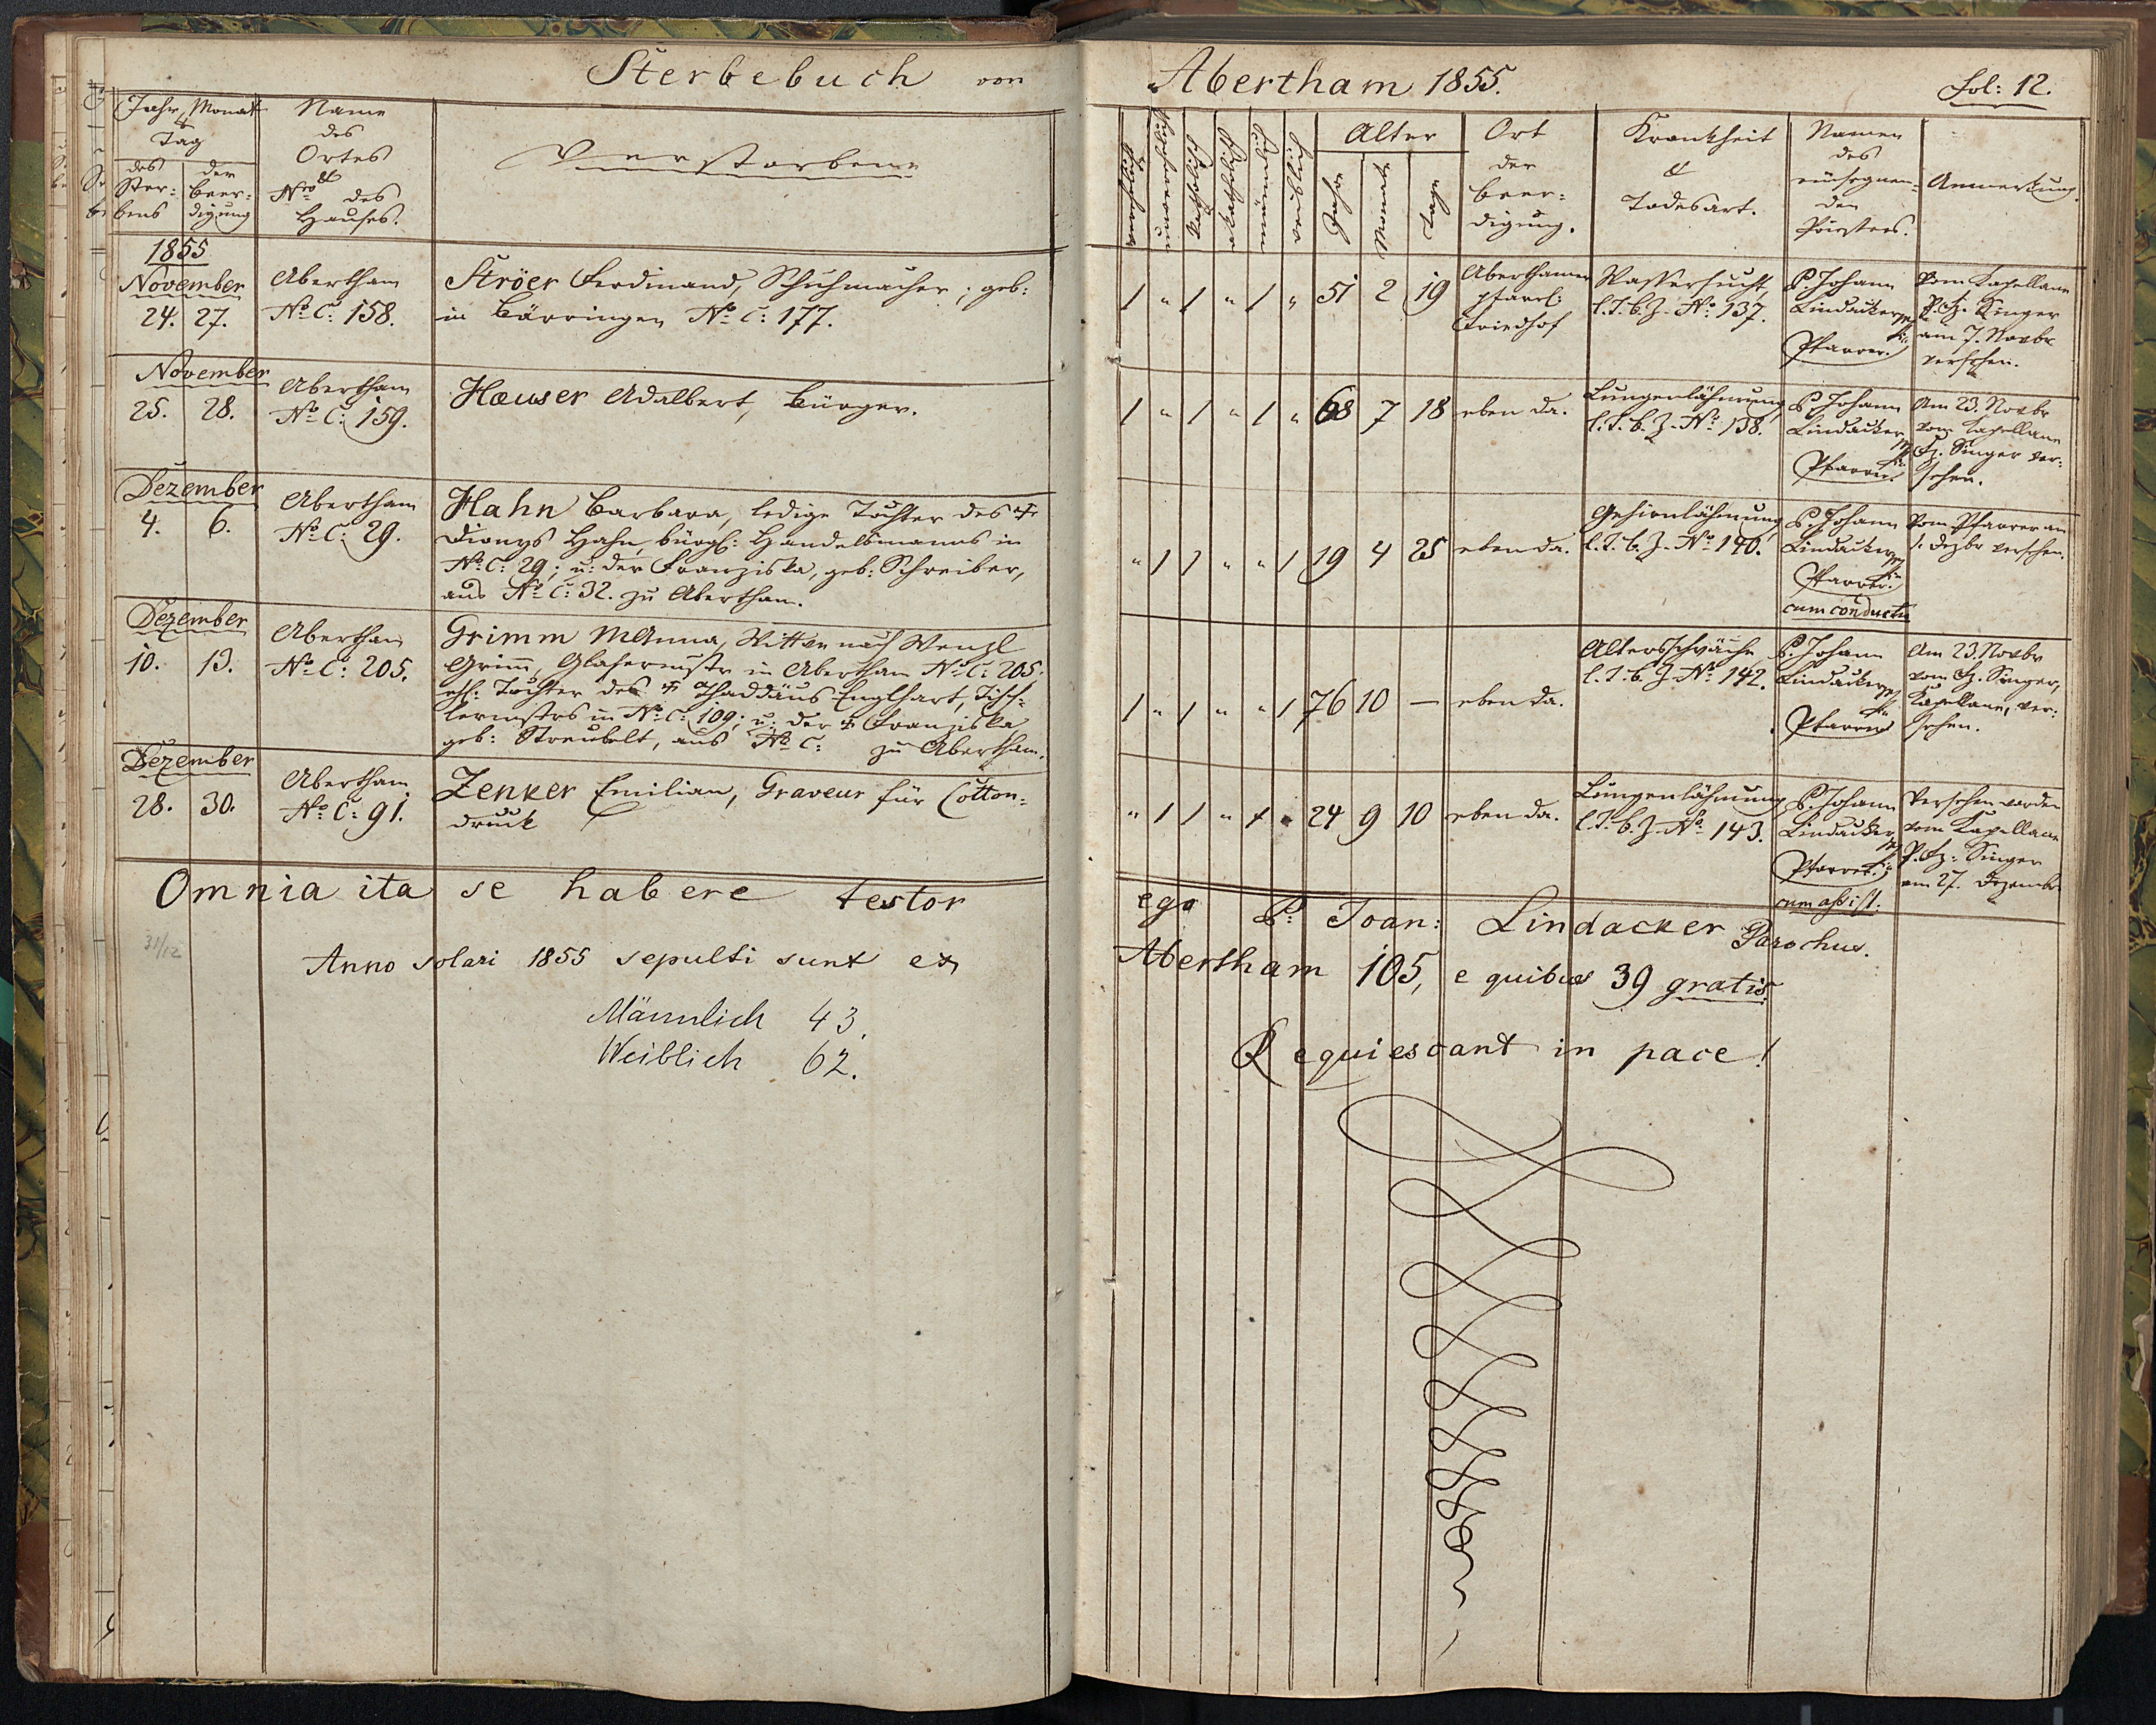 Sterbebuch von
Abertham 1855.
Fol: 12.
Jahr, Monat
&
Tag
des Ster: bens
der Beer: digung
Name
des
Ortes
&
Nro des
Hauses.
Verstorbene
verehelicht
unverehelicht
katholisch
männlich
weiblich
Alter
Jahre
Monate
Tage
Ort
der
Beer:
digung.
Krankheit
&
Todesart.
Namen
des
einsegnen:
den
Priesters.
Anmerkung.
1855
November
24. 27.
Abertham
No C: 158.
Ströer Ferdinand, Schuhmacher; geb:
in Bärringen No C: 177.
/ " / " / " 51 2 19
Aberthamer
pfarrl:
Friedhof
Wassersucht
l. T. b. Z. No: 137.
P. Johann
Lindacker
Pfarrer.
Vom Kapellane
P. Fz. Singer
am 7. Novbr
versehen.
November
25. 28.
Abertham
No C: 159.
Hæuser Adalbert, Bürger.
/ " / " / " 68 7 18 eben da.
Lungenlähmung
l. T. b. Z. No: 138.
P. Johann
Lindacker
Pfarrer.
Am 23. Novbr
vom Kapellane
Fz. Singer ver:
sehen.
Dezember
4. 6.
Abertham
No C: 29.
Hahn Barbara, ledige Tochter des †
Dionys Hahn, bürgl: Handelsmanns in
No C: 29; u: der Franziska, geb: Schreiber,
aus No C: 32. zu Abertham.
" / / " " / 19 4 25 eben da.
Gehirnlähmung
l. T. b. Z. No 140.
P. Johann
Lindacker
Pfarrer.
cum conductu
Vom Pfarrer am
1. Dezbr versehen.
Dezember
10. 13.
Abertham
No C: 205.
Grimm MAnna, Wittwe nach Wenzl
Grim̅, Glasermstr in Abertham No C: 205.
ehl: Tochter des † Thaddäus Englhart, Tisch:
lermstrs in No C: 109; u: der † Franziska
geb: Streubelt, aus No C: zu Abertham.
/ " / " " / 76 10 — eben da.
Altersschwäche
l. T. b. Z. No 142.
P. Johann
Lindacker
Pfarrer
Am 23. Novbr
vom Fz. Singer,
Kapellane, ver:
sehen.
Dezember
28. 30.
Abertham
No C: 91.
Zenker Emilian, Graveur für Cotton:
druck
" / / " / " 24 9 10 eben da.
Lungenlähmung
l. T. b. Z. No 143.
P. Johann
Lindacker
Pfarrer.
cum assist:
Versehen worden
vom Kapellane
P. Fz: Singer
am 27. Dezember
Omnia ita se habere testor
ego P: Joan: Lindacker Parochus.
31/12
Anno solari 1855 sepulti sunt ex
Abertham 105, e quibus 39 gratis.
Männlich 43.
Weiblich 62.
Requiescant in pace!